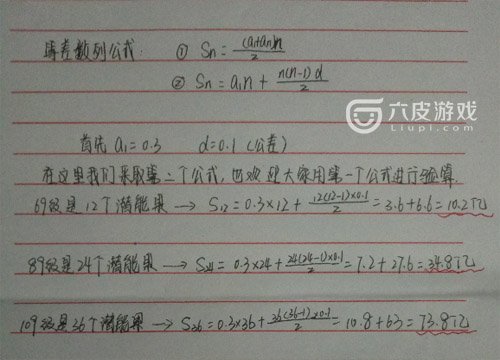 等差数列公式: ① Sn=(a1+an)n/2
② Sn=a1n+n(n-1)d/2
六皮游戏
Liupi.com
首先 a1=0.3 d=0.1 (公差)
在这里我们采取第二个公式,也欢迎大家用第一个公式进行验算.
69级是12个潜能果 → S12=0.3×12+12(12-1)×0.1/2=3.6+6.6=10.2亿
89级是24个潜能果 → S24=0.3×24+24(24-1)×0.1/2=7.2+27.6=34.8亿
109级是36个潜能果 → S36=0.3×36+36(36-1)×0.1/2=10.8+63=73.8亿